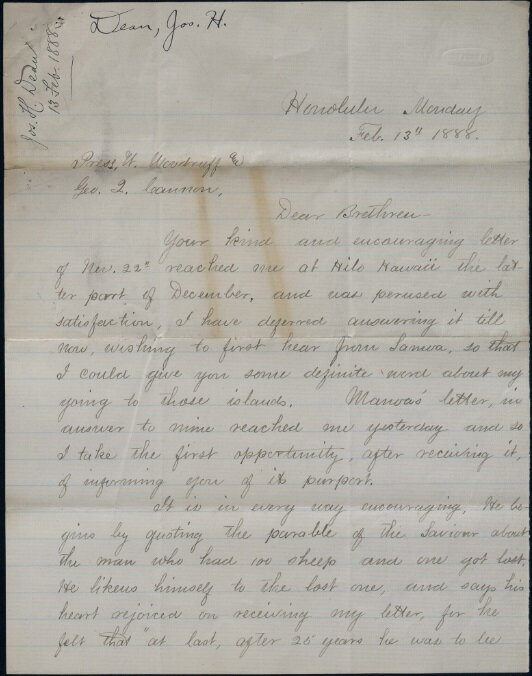 Dean, Jos. H.
Jos. H. Dean
13 Feb. 1888
Honolulu Monday
Feb. 13th 1888.
Press. W. Woodruff &
Geo. Q. Cannon,
Dear Brethren—
Your kind and encouraging letter
of Nov. 22nd reached me at Hilo Hawaii the lat-
ter part of December, and was perused with
satisfaction, I have deferred answering it till
now, wishing to first hear from Samoa, so that
I could give you some definite word about my
going to those islands. Manoa's letter, in
answer to mine reached me yesterday and so
I take the first opportunity, after receiving it,
of informing you of its purport.
It is in every way encouraging. He be-
gins by quoting the parable of the Saviour about
the man who had 100 sheep and one got lost,
He likens himself to the lost one, and says his
heart rejoiced on receiving my letter, for he
felt that "at last, after 25 years he was to be